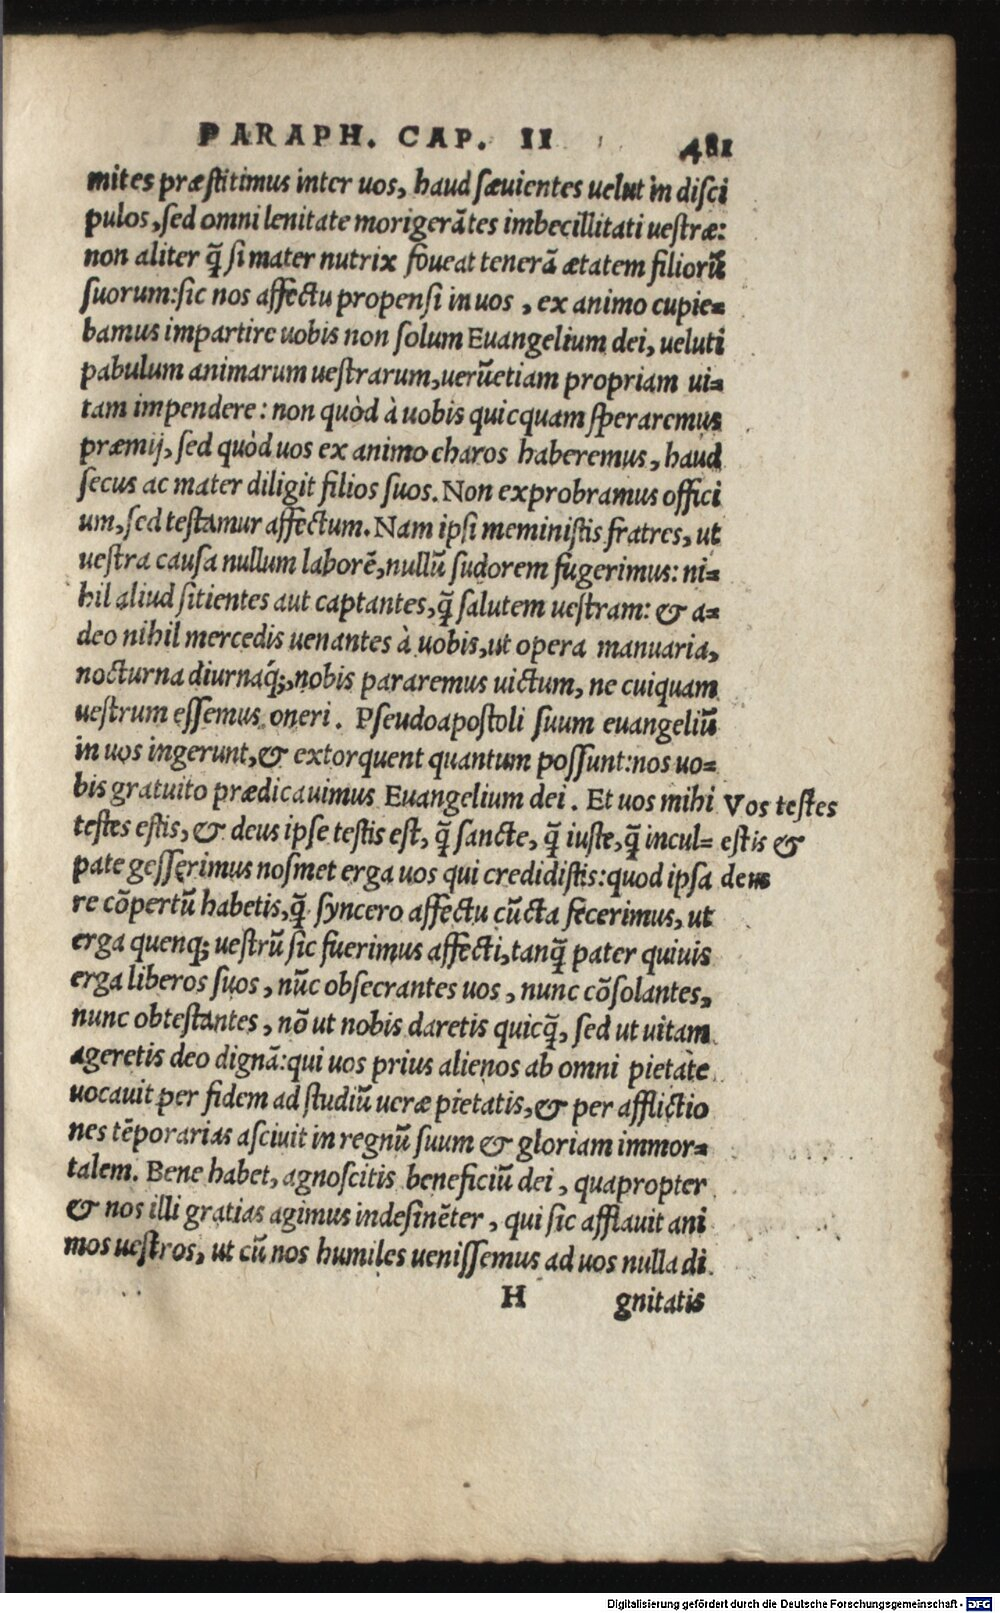 PARAPH. CAP. II 481
mites præstitimus inter uos, haud sæuientes uelut in disci
pulos, sed omni lenitate morigerãtes imbecillitati uestræ:
non aliter q̃ si mater nutrix foueat tenerã ætatem filiorũ
suorum: sic nos affectu propensi in uos, ex animo cupie=
bamus impartire uobis non solum Euangelium dei, ueluti
pabulum animarum uestrarum, uerũetiam propriam ui=
tam impendere: non quòd à uobis quicquam speraremus
præmij, sed quòd uos ex animo charos haberemus, haud
secus ac mater diligit filios suos. Non exprobramus offici
um, sed testamur affectum. Nam ipsi meministis fratres, ut
uestra causa nullum laborẽ, nullũ sudorem fugerimus: ni=
hil aliud sitientes aut captantes, q̃ salutem uestram: & a=
deo nihil mercedis uenantes à uobis, ut opera manuaria,
nocturna diurnáq;, nobis pararemus uictum, ne cuiquam
uestrum essemus oneri. Pseudoapostoli suum euangeliũ
in uos ingerunt, & extorquent quantum possunt: nos uo=
bis gratuito prædicauimus Euangelium dei. Et uos mihi
testes estis, & deus ipse testis est, q̃ sancte, q̃ iuste, q̃ incul=
pate gesserimus nosmet erga uos qui credidistis: quod ipsa
re cõpertũ habetis, q̃ syncero affectu cũcta fecerimus, ut
erga quenq; uestrũ sic fuerimus affecti, tanq̃ pater quiuis
erga liberos suos, nũc obsecrantes uos, nunc cõsolantes,
nunc obtestantes, nõ ut nobis daretis quicq̃, sed ut uitam
ageretis deo dignã: qui uos prius alienos ab omni pietate
uocauit per fidem ad studiũ ueræ pietatis, & per afflictio
nes tẽporarias asciuit in regnũ suum & gloriam immor=
talem. Bene habet, agnoscitis beneficiũ dei, quapropter
& nos illi gratias agimus indesinẽter, qui sic afflauit ani
mos uestros, ut cũ nos humiles uenissemus ad uos nulla di
H gnitatis
Vos testes
estis &
deus
Digitalisierung gefördert durch die Deutsche Forschungsgemeinschaft - DFG